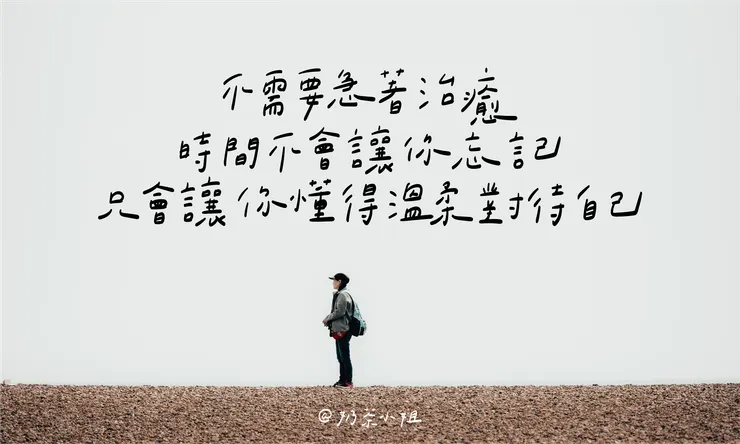 不需要急著治癒
時間不會讓你忘記
只會讓你懂得溫柔對待自己
@奶茶小姐